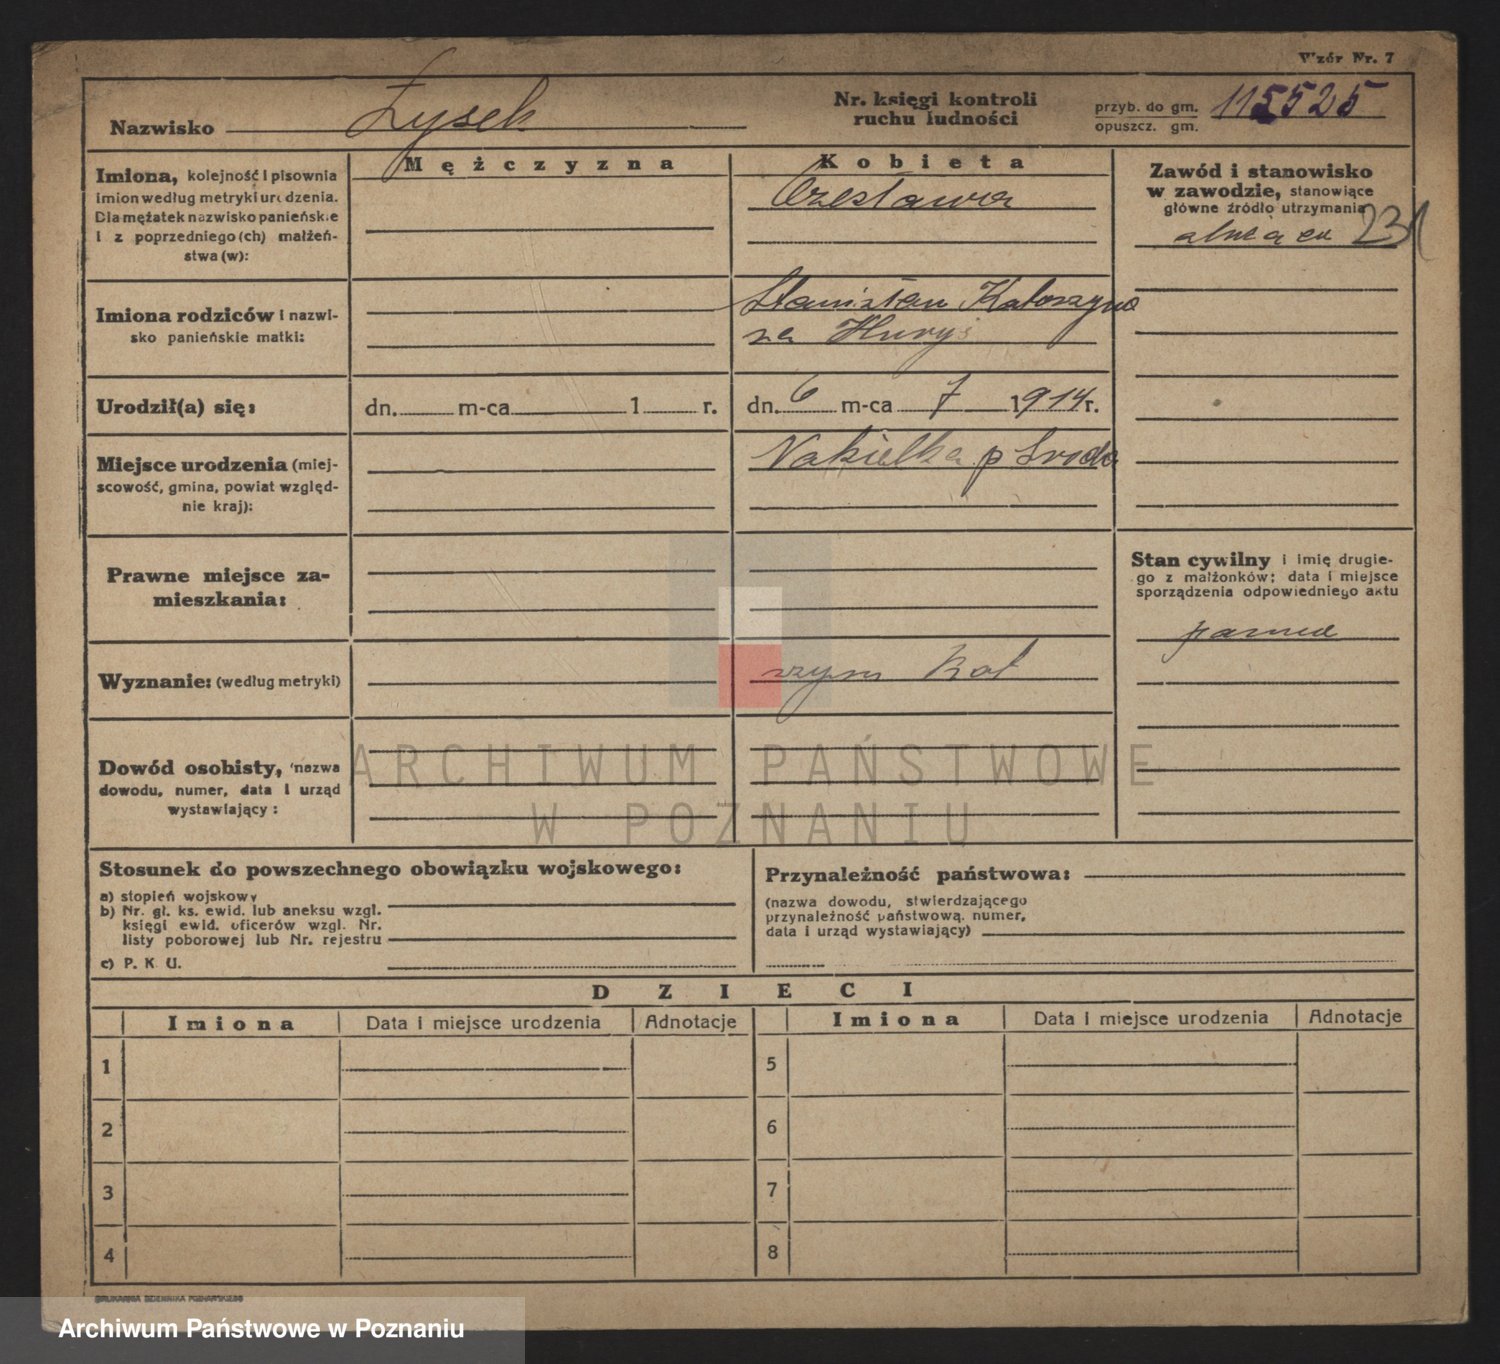 Wzór Nr. 7
Nazwisko Łysek
Nr. księgi kontroli ruchu ludności
przyb. do gm. 115525
opuszcz. gm.
Mężczyzna
Kobieta
Imiona, kolejność i pisownia
imion według metryki urodzenia.
Dla mężatek nazwisko panieńskie
i z poprzedniego (ch) małżeń-
stwa (w):
Czesława
Zawód i stanowisko
w zawodzie, stanowiące
główne źródło utrzymania
231
Imiona rodziców i nazwi-
sko panieńskie matki:
Stanisław Katarzyna
za
Urodził(a) się:
dn. m-ca 1 r.
dn. 6 m-ca 7 1914 r.
Miejsce urodzenia (miej-
scowość, gmina, powiat względ-
nie kraj):
Nakielka p Środa
Prawne miejsce za-
mieszkania:
Stan cywilny i imię drugie-
go z małżonków; data i miejsce
sporządzenia odpowiedniego aktu
panna
Wyznanie: (według metryki)
rzym kat
Dowód osobisty, nazwa
dowodu, numer, data i urząd
wystawiający :
ARCHIWUM PAŃSTWOWE
W POZNANIU
Stosunek do powszechnego obowiązku wojskowego:
a) stopień wojskowy
b) Nr. gł. ks. ewid. lub aneksu wzgl.
księgi ewid. oficerów wzgl. Nr.
listy poborowej lub Nr. rejestru
c) P. K. U.
Przynależność państwowa:
(nazwa dowodu, stwierdzającego
przynależność państwową, numer,
data i urząd wystawiający)
DZIECI
Imiona Data i miejsce urodzenia Adnotacje Imiona Data i miejsce urodzenia Adnotacje
1 5
2 6
3 7
4 8
DRUKARNIA DZIENNIKA POZNAŃSKIEGO
Archiwum Państwowe w Poznaniu